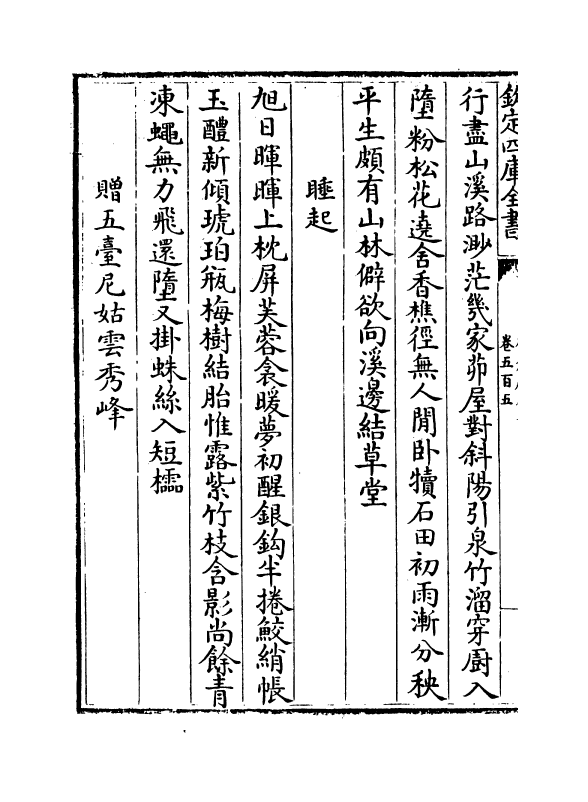 欽定四庫全書
卷五百五
行盡山溪路渺茫幾家茆屋對斜陽引泉竹溜穿厨入
墮粉松花遶舍香樵徑無人閒卧犢石田初雨漸分秧
平生頗有山林僻欲向溪邊結草堂
睡起
旭日暉暉上枕屏芙蓉衾暖夢初醒銀鈎半捲鮫綃帳
玉醴新傾琥珀瓶梅樹結胎惟露紫竹枝含影尚餘青
凍蠅無力飛還墮又掛蛛絲入短櫺
贈五臺尼姑雲秀峰